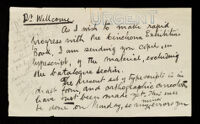 Dr Wellcome
URGENT
As I wish to make rapid
progress with the Exhibition
Book, I am sending you copies, in
typescript, of the material, excluding
the Catalogue section.
The present set of typescripts is in
draft form, and orthographic
have not been made yet. This will
be done on Monday, so